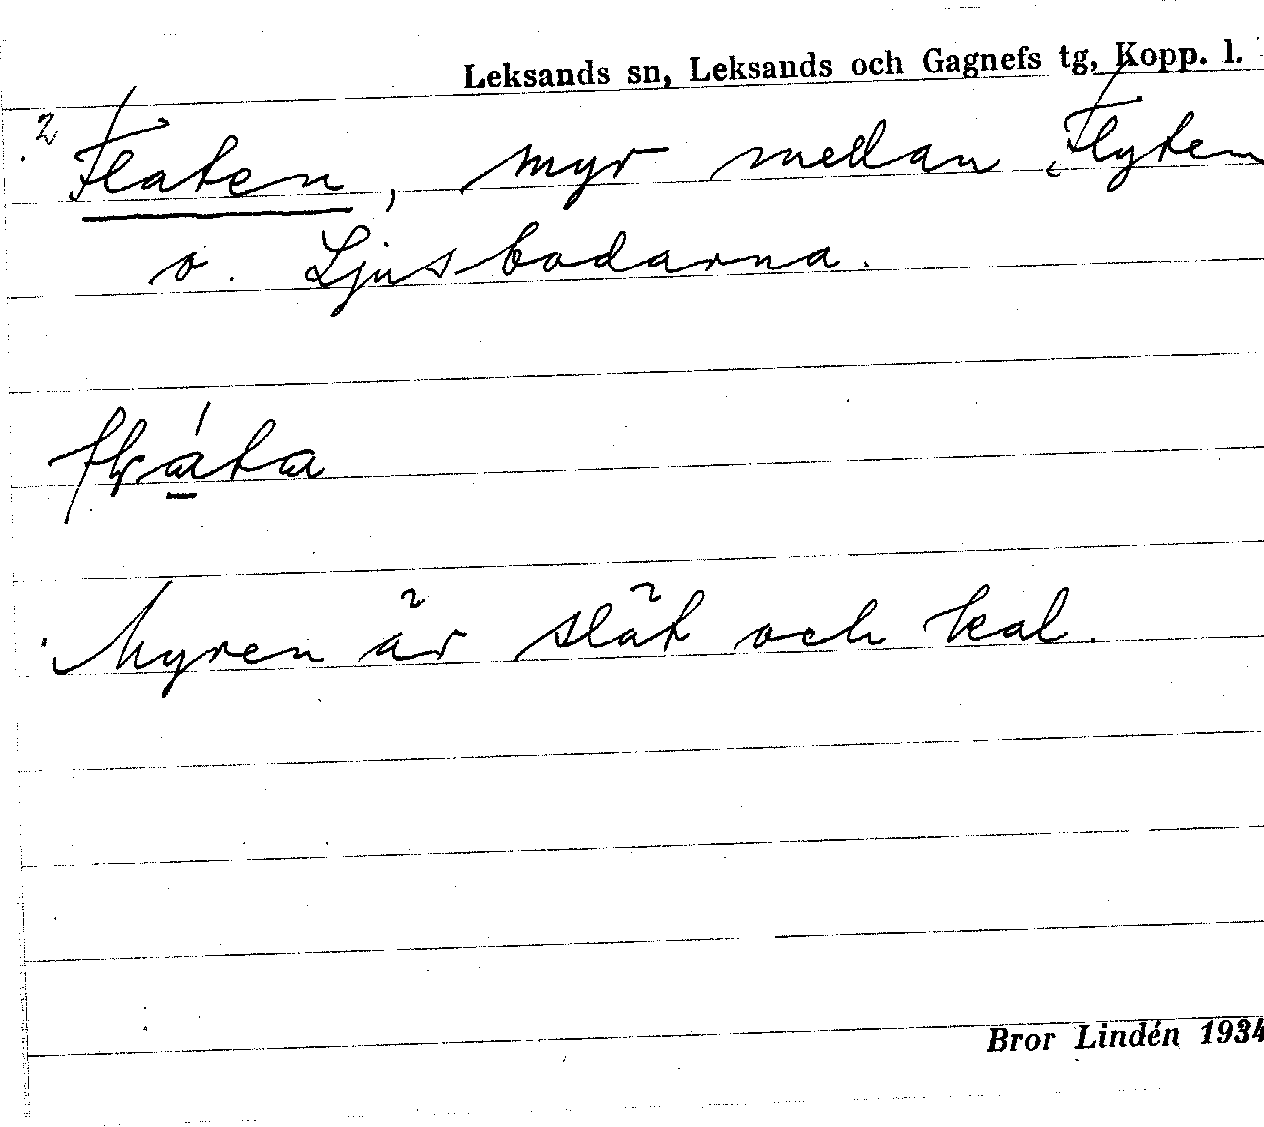 Leksands sn, Leksands och Gagnefs tg, Kopp. l.
2 Flaten, myr medan Flyten
o. Ljusbodarna.
Myren är slät och kal.
Bror Lindén 1934